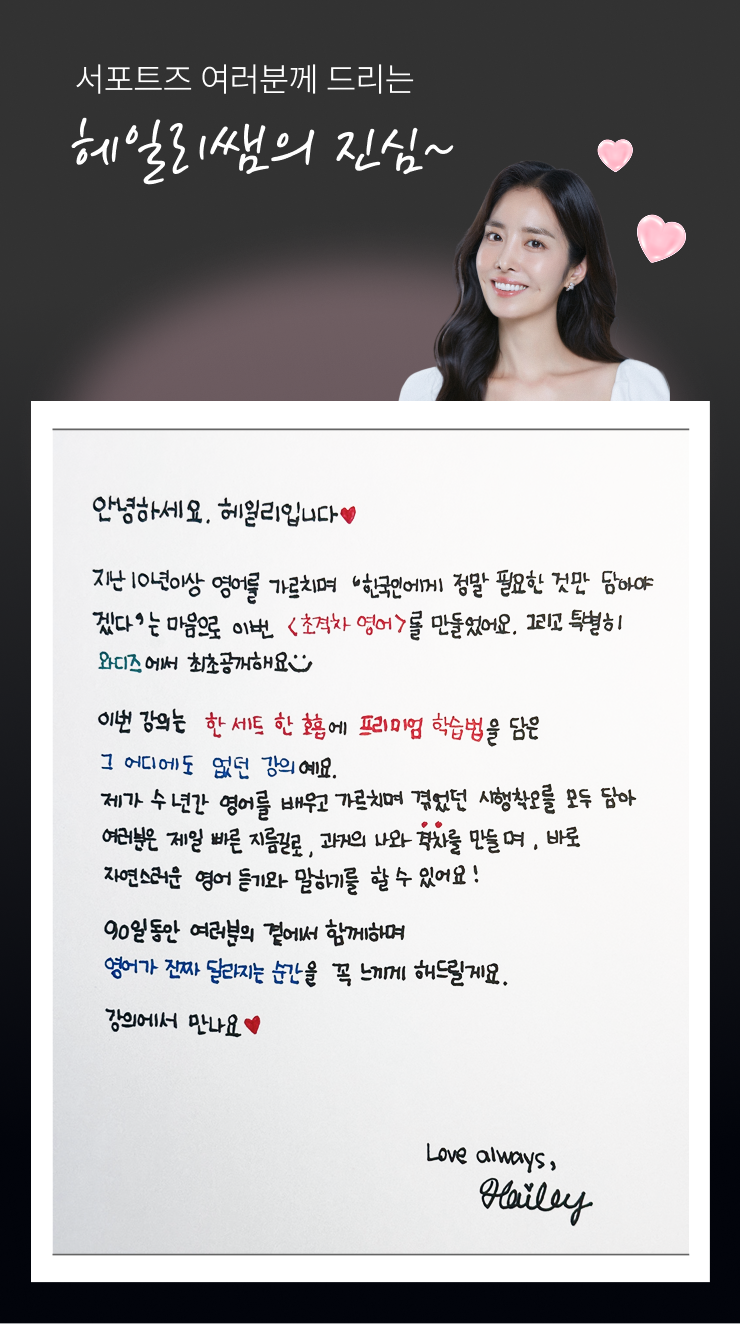 서포트즈 여러분께 드리는
헤일리쌤의 진심~
안녕하세요. 헤일리입니다♥
지난 10년이상 영어를 가르치며 "한국인에게 정말 필요한 것만 담아야
겠다"는 마음으로 이번 <초격차 영어>를 만들었어요. 그리고 특별히
와디즈에서 최초공개해요
이번 강의는 한 세트 한 호흡에 프리미엄 학습법을 담은
그 어디에도 없던 강의예요.
제가 수 년간 영어를 배우고 가르치며 겪었던 시행착오를 모두 담아
여러분은 제일 빠른 지름길로, 과거의 나와 격차를 만들며, 바로
자연스러운 영어 듣기와 말하기를 할 수 있어요!
90일동안 여러분의 곁에서 함께하며
영어가 진짜 달라지는 순간을 꼭 느끼게 해드릴게요.
강의에서 만나요♥
Love always,
Hailey